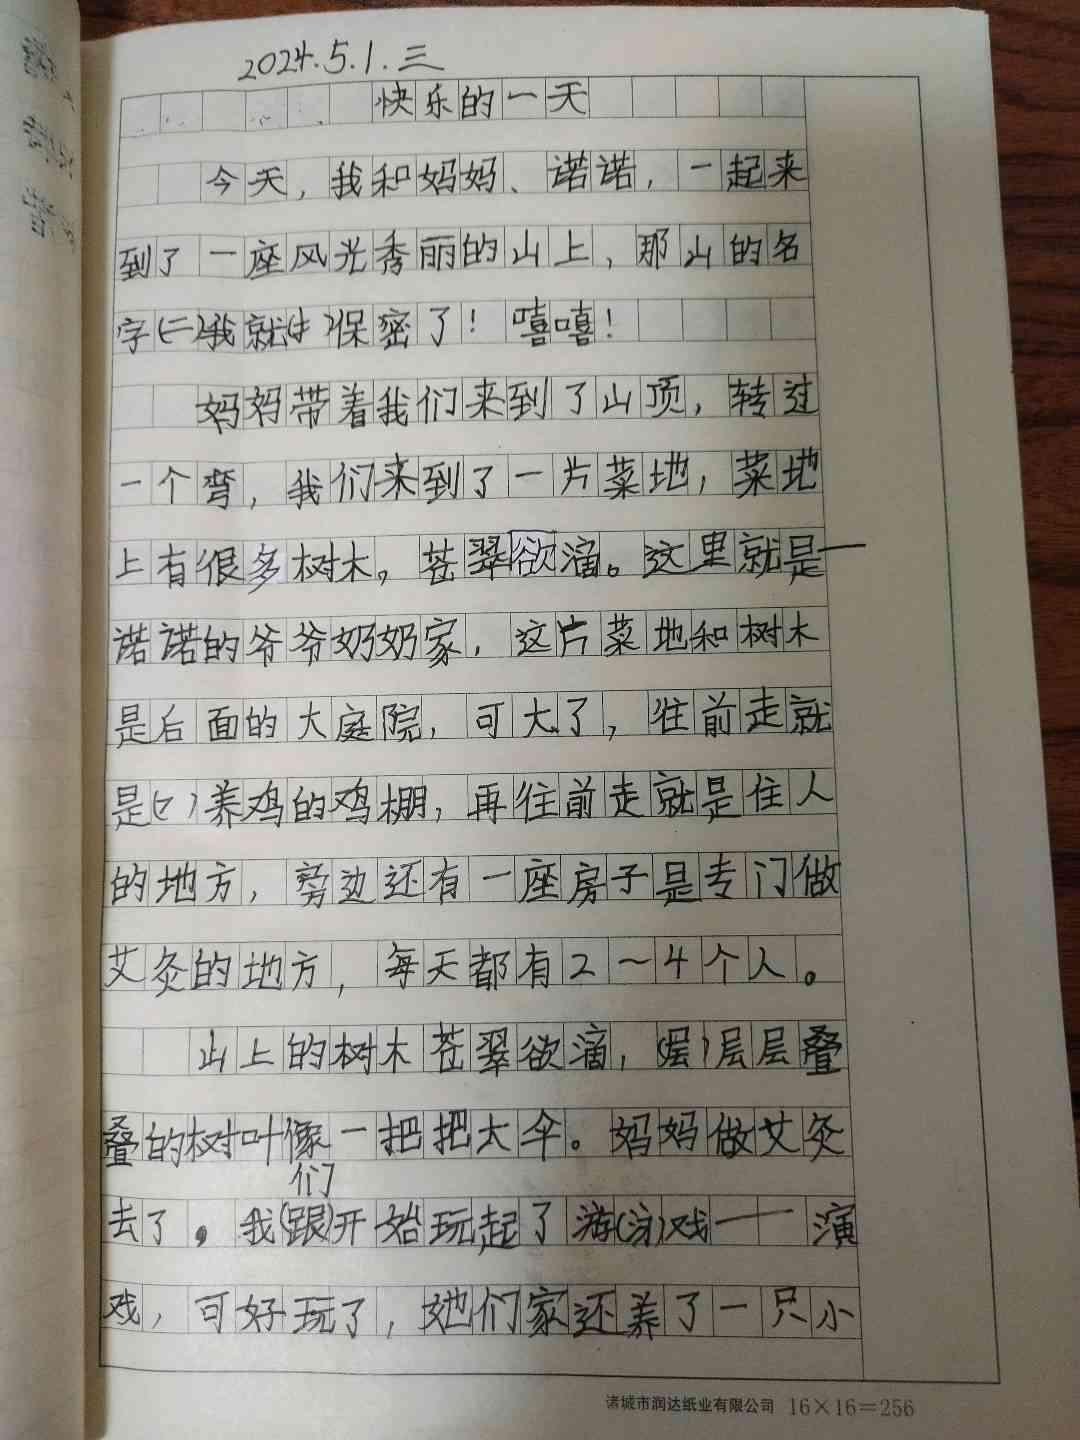 2024.5.1.三
快乐的一天
今天，我和妈妈、诺诺，一起来
到了一座风光秀丽的山上，那山的名
字(二)我就(扌)保密了！嘻嘻！
妈妈带着我们来到了山顶，转过
一个弯，我们来到了一片菜地，菜地
上有很多树木，苍翠欲滴。这里就是一
诺诺的爷爷奶奶家，这片菜地和树木
是后面的大庭院，可大了，往前走就
是( )养鸡的鸡棚，再往前走就是住人
的地方，旁边还有一座房子是专门做
艾灸的地方，每天都有2～4个人。
山上的树木苍翠欲滴，(层)层层叠
叠的树叶像一把把大伞。妈妈做艾灸
们
去了，我(跟)开始玩起了游(泳)戏——演
戏，可好玩了，她们家还养了一只小
诸城市润达纸业有限公司 16×16=256